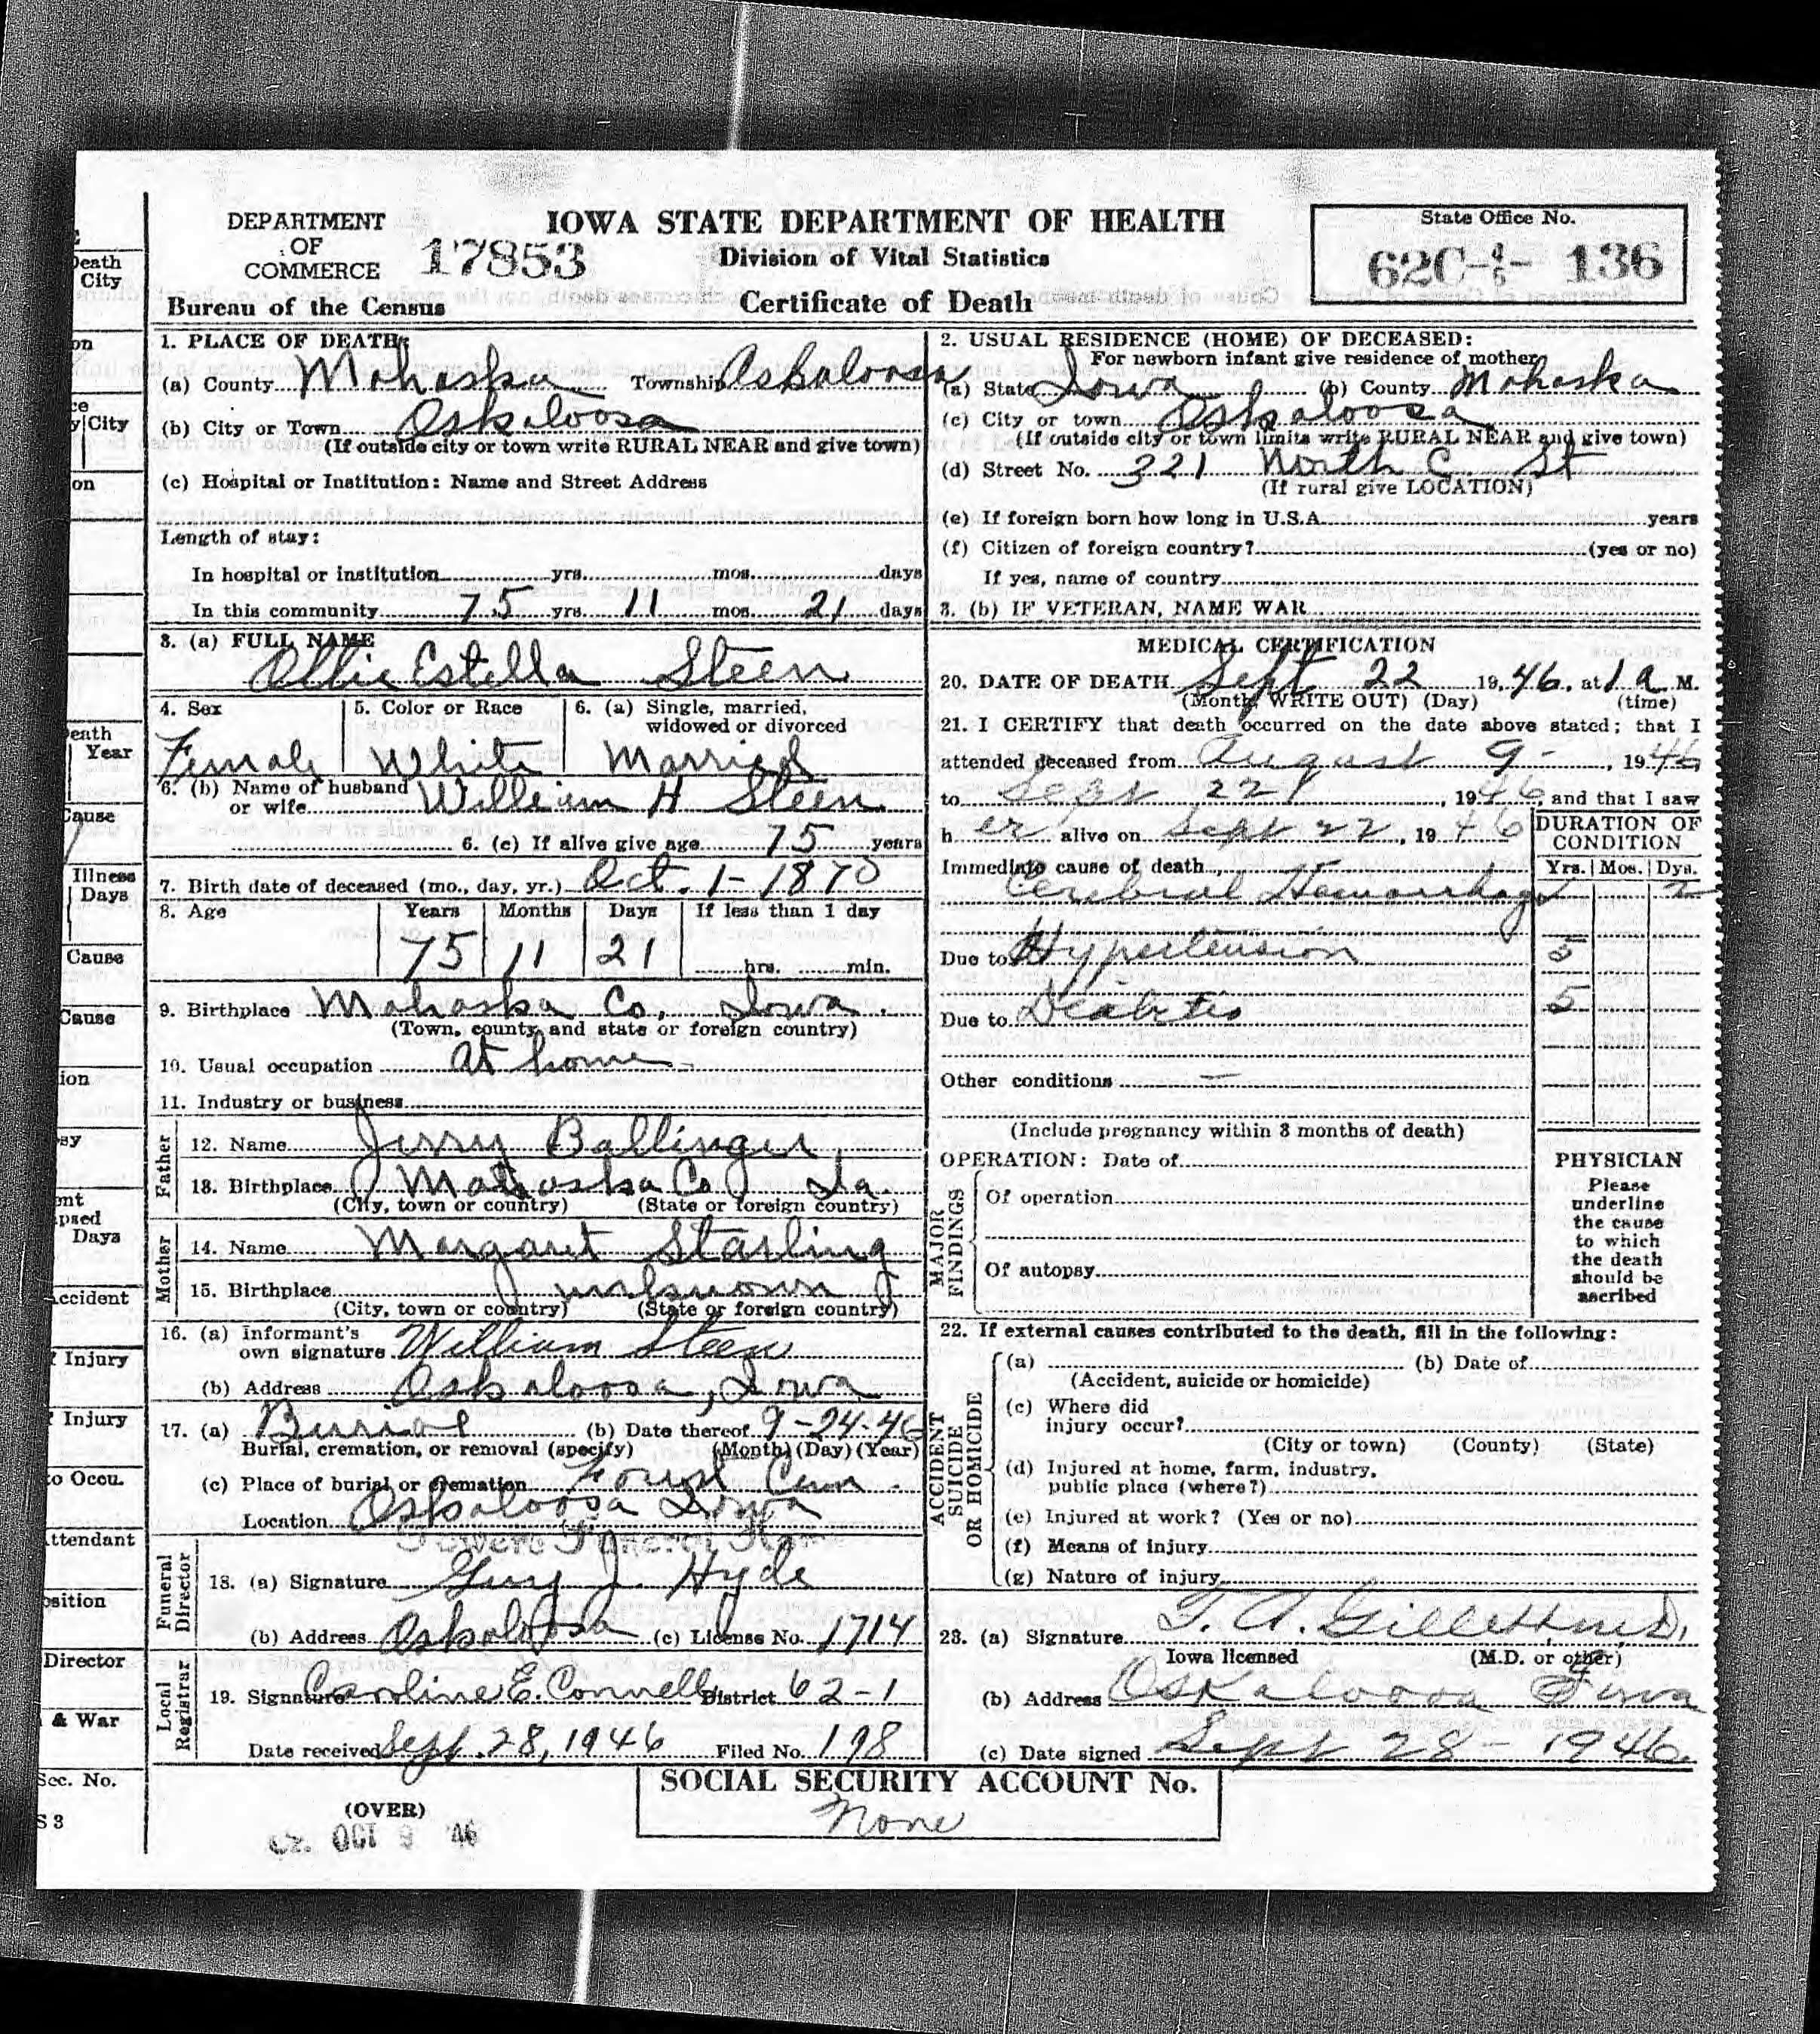 DEPARTMENT
OF
COMMERCE
17853
Bureau of the Census
IOWA STATE DEPARTMENT OF HEALTH
Division of Vital Statistics
Certificate of Death
State Office No.
62C-4/6- 136
1. PLACE OF DEATH:
(a) County Mahaska Township Oskaloosa
(b) City or Town Oskaloosa
(If outside city or town write RURAL NEAR and give town)
(c) Hospital or Institution: Name and Street Address
Length of stay:
In hospital or institution yrs. mos. days
In this community 75 yrs. 11 mos. 21 days
2. USUAL RESIDENCE (HOME) OF DECEASED:
For newborn infant give residence of mother
(a) State Iowa (b) County Mahaska
(c) City or town Oskaloosa
(If outside city or town limits write RURAL NEAR and give town)
(d) Street No. 321 North C St
(If rural give LOCATION)
(e) If foreign born how long in U.S.A. years
(f) Citizen of foreign country? (yes or no)
If yes, name of country
3. (b) IF VETERAN, NAME WAR
3. (a) FULL NAME
Ollie Estella Steen
4. Sex
Female
5. Color or Race
White
6. (a) Single, married,
widowed or divorced
Married
6. (b) Name of husband
or wife William H Steen
6. (c) If alive give age 75 years
7. Birth date of deceased (mo., day, yr.) Oct. 1- 1870
8. Age
Years Months Days If less than 1 day
75 11 21 hrs. min.
9. Birthplace Mahaska Co, Iowa.
(Town, county, and state or foreign country)
10. Usual occupation at home
11. Industry or business
Father
12. Name Jerry Ballinger
13. Birthplace Mahaska Co Ia.
(City, town or country) (State or foreign country)
Mother
14. Name Margaret Starling
15. Birthplace unknown
(City, town or country) (State or foreign country)
16. (a) Informant's
own signature William Steen
(b) Address Oskaloosa, Iowa
17. (a) Burial (b) Date thereof 9-24-46
Burial, cremation, or removal (specify) (Month) (Day) (Year)
(c) Place of burial or cremation Forest Cem.
Location Oskaloosa Iowa
Funeral Director
18. (a) Signature Guy J. Hyde
(b) Address Oskaloosa (c) License No. 1714
Local Registrar
19. Signature Caroline E. Connell District 62-1
Date received Sept. 28, 1946 Filed No. 198
MEDICAL CERTIFICATION
20. DATE OF DEATH Sept 22 1946, at 1 a M.
(Month, WRITE OUT) (Day) (time)
21. I CERTIFY that death occurred on the date above stated; that I
attended deceased from August 9 -, 1946
to Sept 22, 1946, and that I saw
her alive on Sept 22, 1946
DURATION OF
CONDITION
Yrs. Mos. Dys.
Immediate cause of death
Cerebral Hemorrhage 2
Due to Hypertension 5
Due to Diabetis 5
Other conditions —
(Include pregnancy within 3 months of death)
OPERATION: Date of
MAJOR FINDINGS
Of operation
Of autopsy
PHYSICIAN
Please
underline
the cause
to which
the death
should be
ascribed
22. If external causes contributed to the death, fill in the following:
ACCIDENT
SUICIDE
OR HOMICIDE
(a) (b) Date of
(Accident, suicide or homicide)
(c) Where did
injury occur?
(City or town) (County) (State)
(d) Injured at home, farm, industry,
public place (where?)
(e) Injured at work? (Yes or no)
(f) Means of injury
(g) Nature of injury
23. (a) Signature F. A. Gillett, M.D.
Iowa licensed (M.D. or other)
(b) Address Oskaloosa Iowa
(c) Date signed Sept 28 - 1946
SOCIAL SECURITY ACCOUNT No.
None
(OVER)
OCT 9 '46
Death
City
City
Death
Year
Cause
Illness
Days
Cause
Cause
Days
Accident
Injury
Injury
to Occu.
Attendant
Director
& War
Sec. No.
S 3